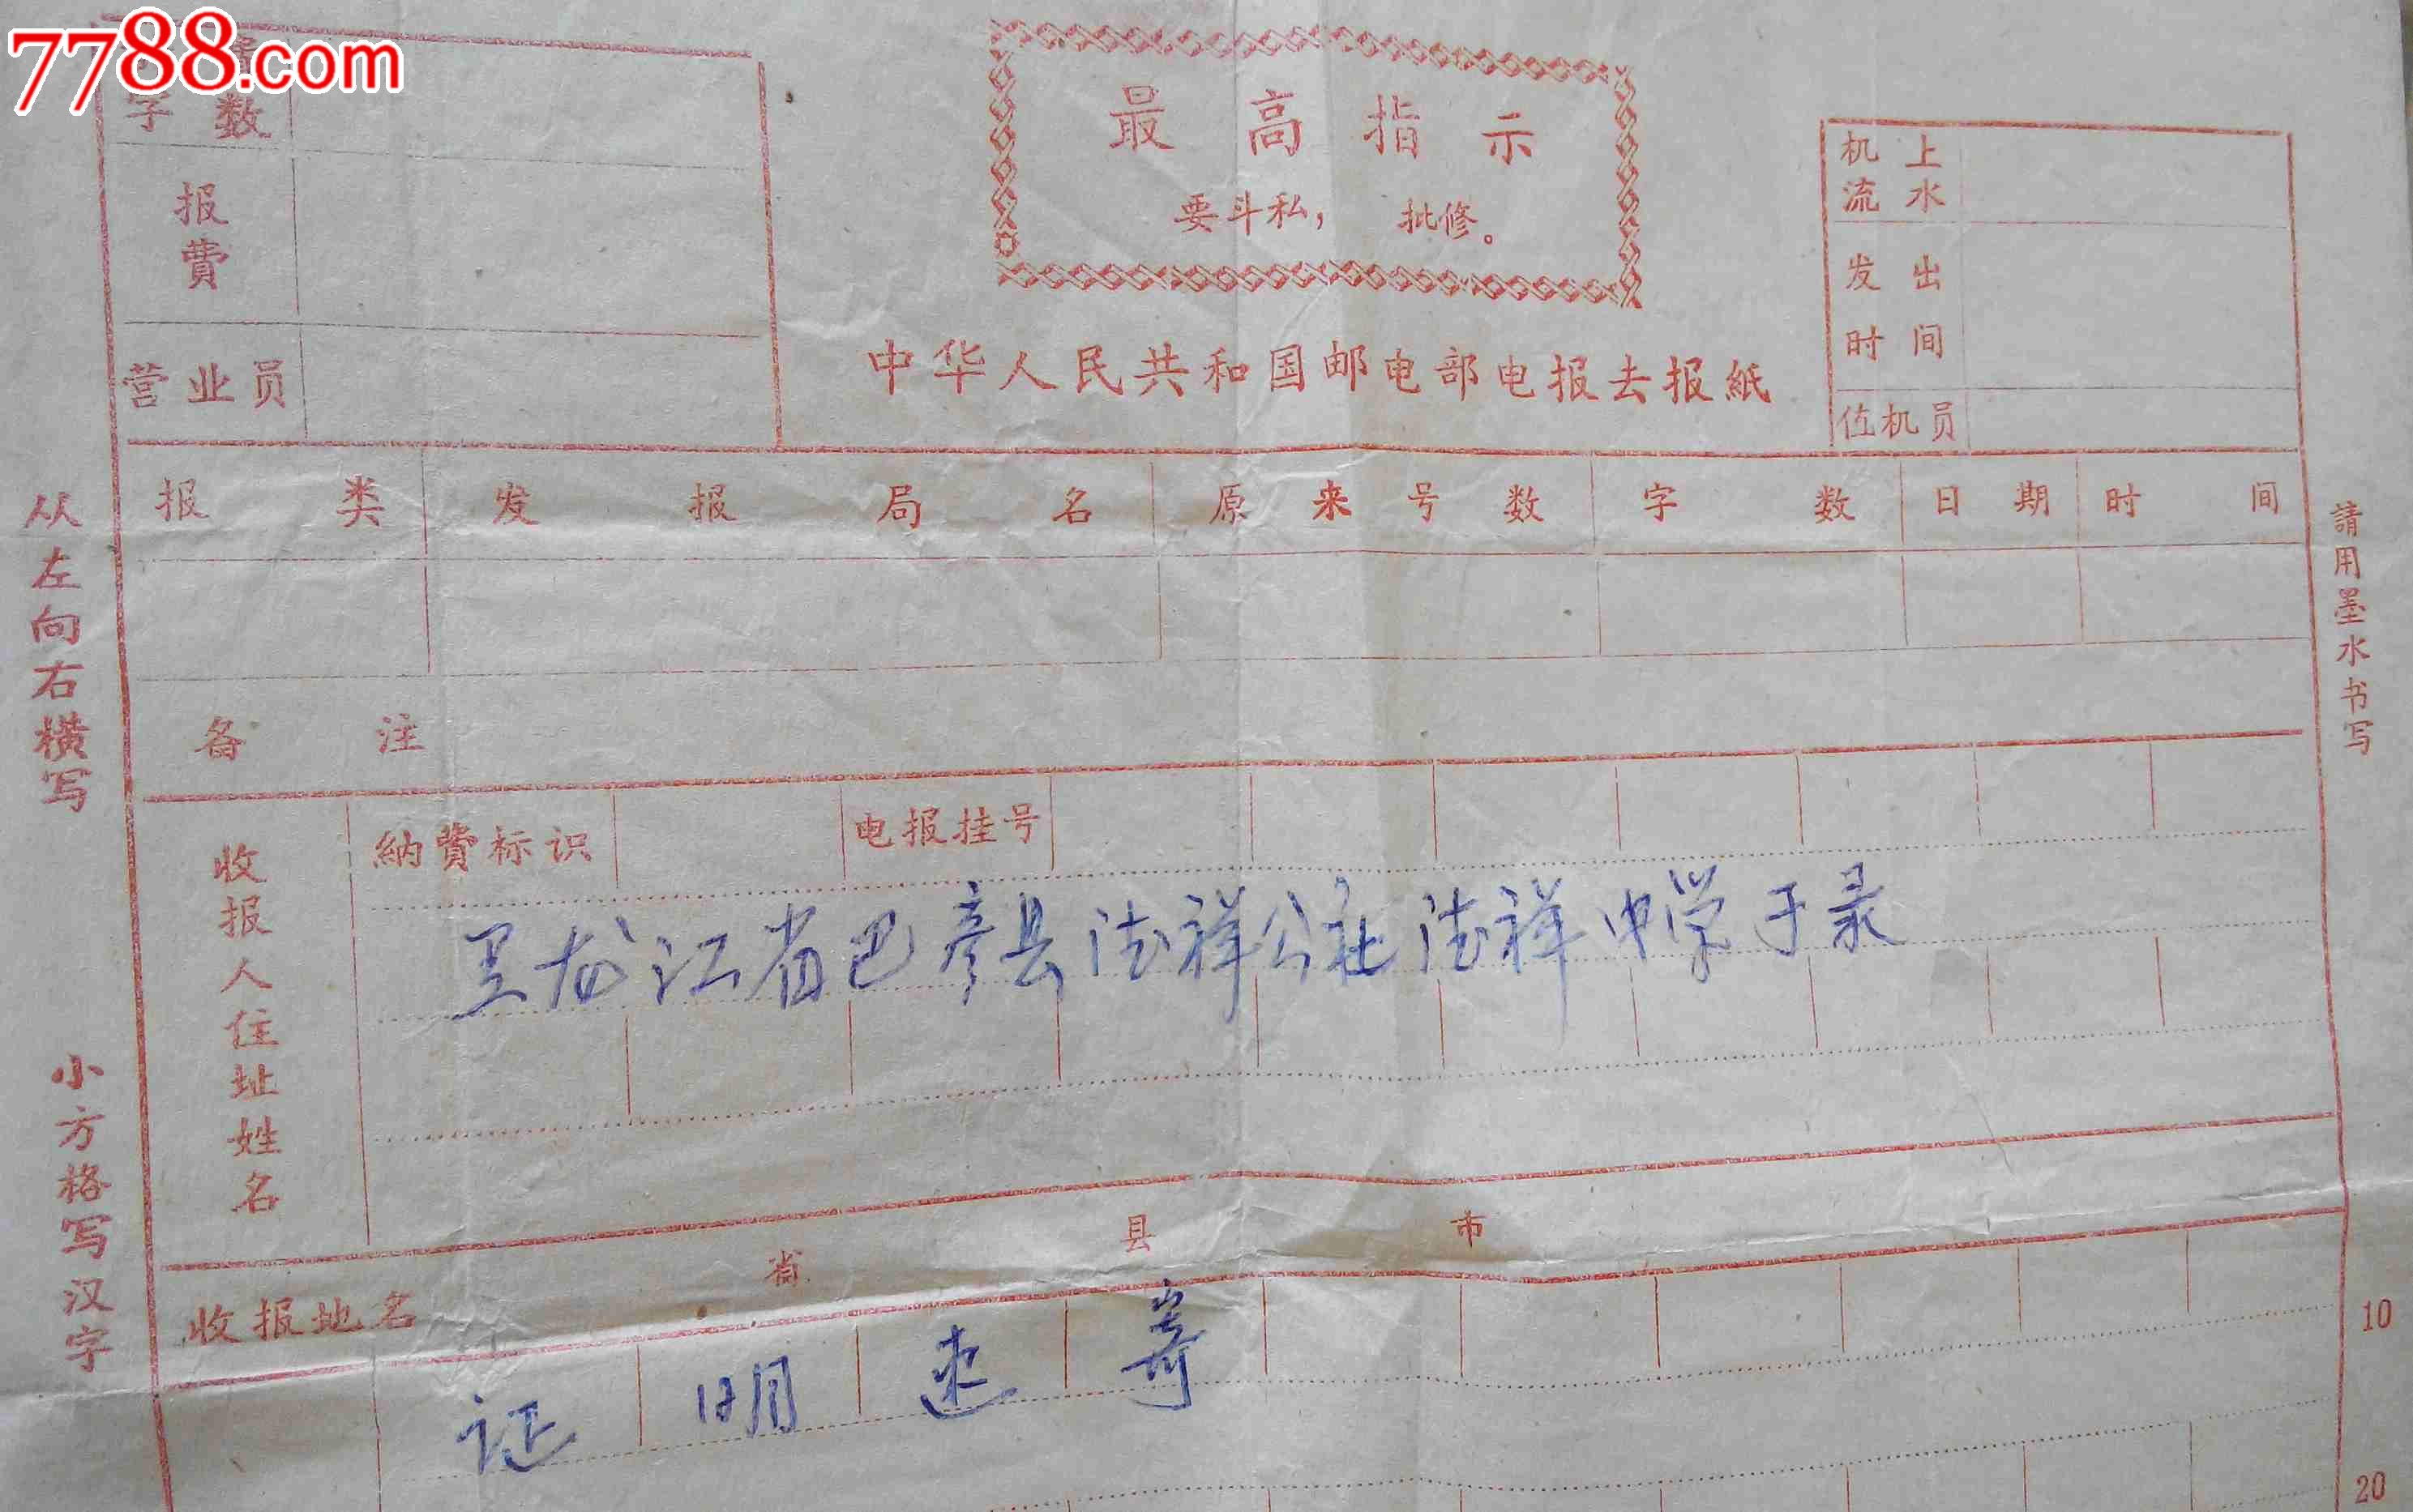 7788.com
字数
报费
营业员
最高指示
要斗私，批修。
中华人民共和国邮电部电报去报紙
机上流水
发出时间
值机员
报类 发报局名 原来号数 字数 日期 时间
备注
納費标识 电报挂号
收报人住址姓名
黑龙江省巴彦县德祥公社德祥中学于录
收报地名 省 县 市
证明速寄
10
20
从左向右横写
小方格写汉字
請用墨水书写